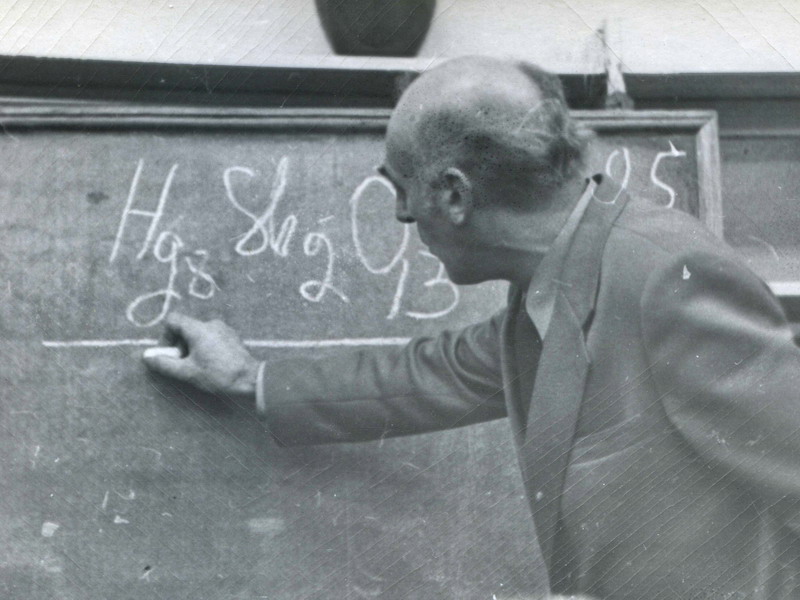 Hg8 Sb2 O13 95